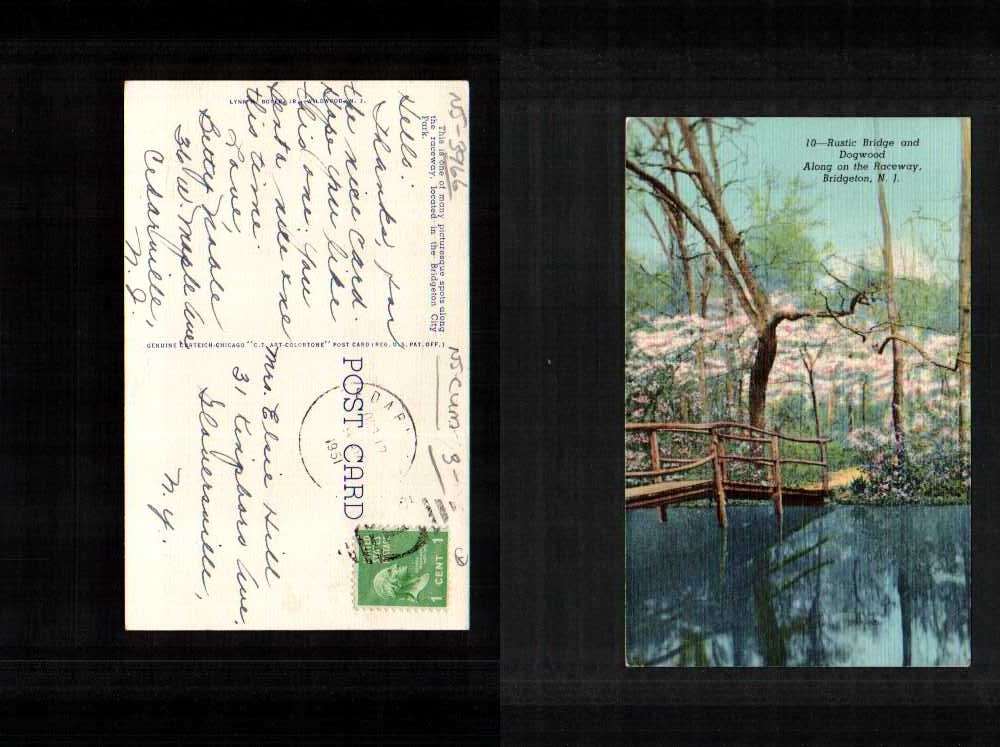 NJ-3966
This is one of many picturesque spots along
the raceway, located in the Bridgeton City
Park.
Hello:
Thanks, for
the nice Card.
Hope you like
this one. You
sent nice one
this time.
Love,
Betty Moore
36 W. Maple Ave
Cedarville,
N. J.
GENUINE CURTEICH-CHICAGO "C.T. ART-COLORTONE" POST CARD (REG. U.S. PAT. OFF.)
NJ CUM
3-
POST CARD
1951
UNITED
STATES
1 CENT 1
Mrs. Elsie Hill
31 Kingsboro Ave.
Gloversville,
N. Y.
10—Rustic Bridge and
Dogwood
Along on the Raceway,
Bridgeton, N. J.